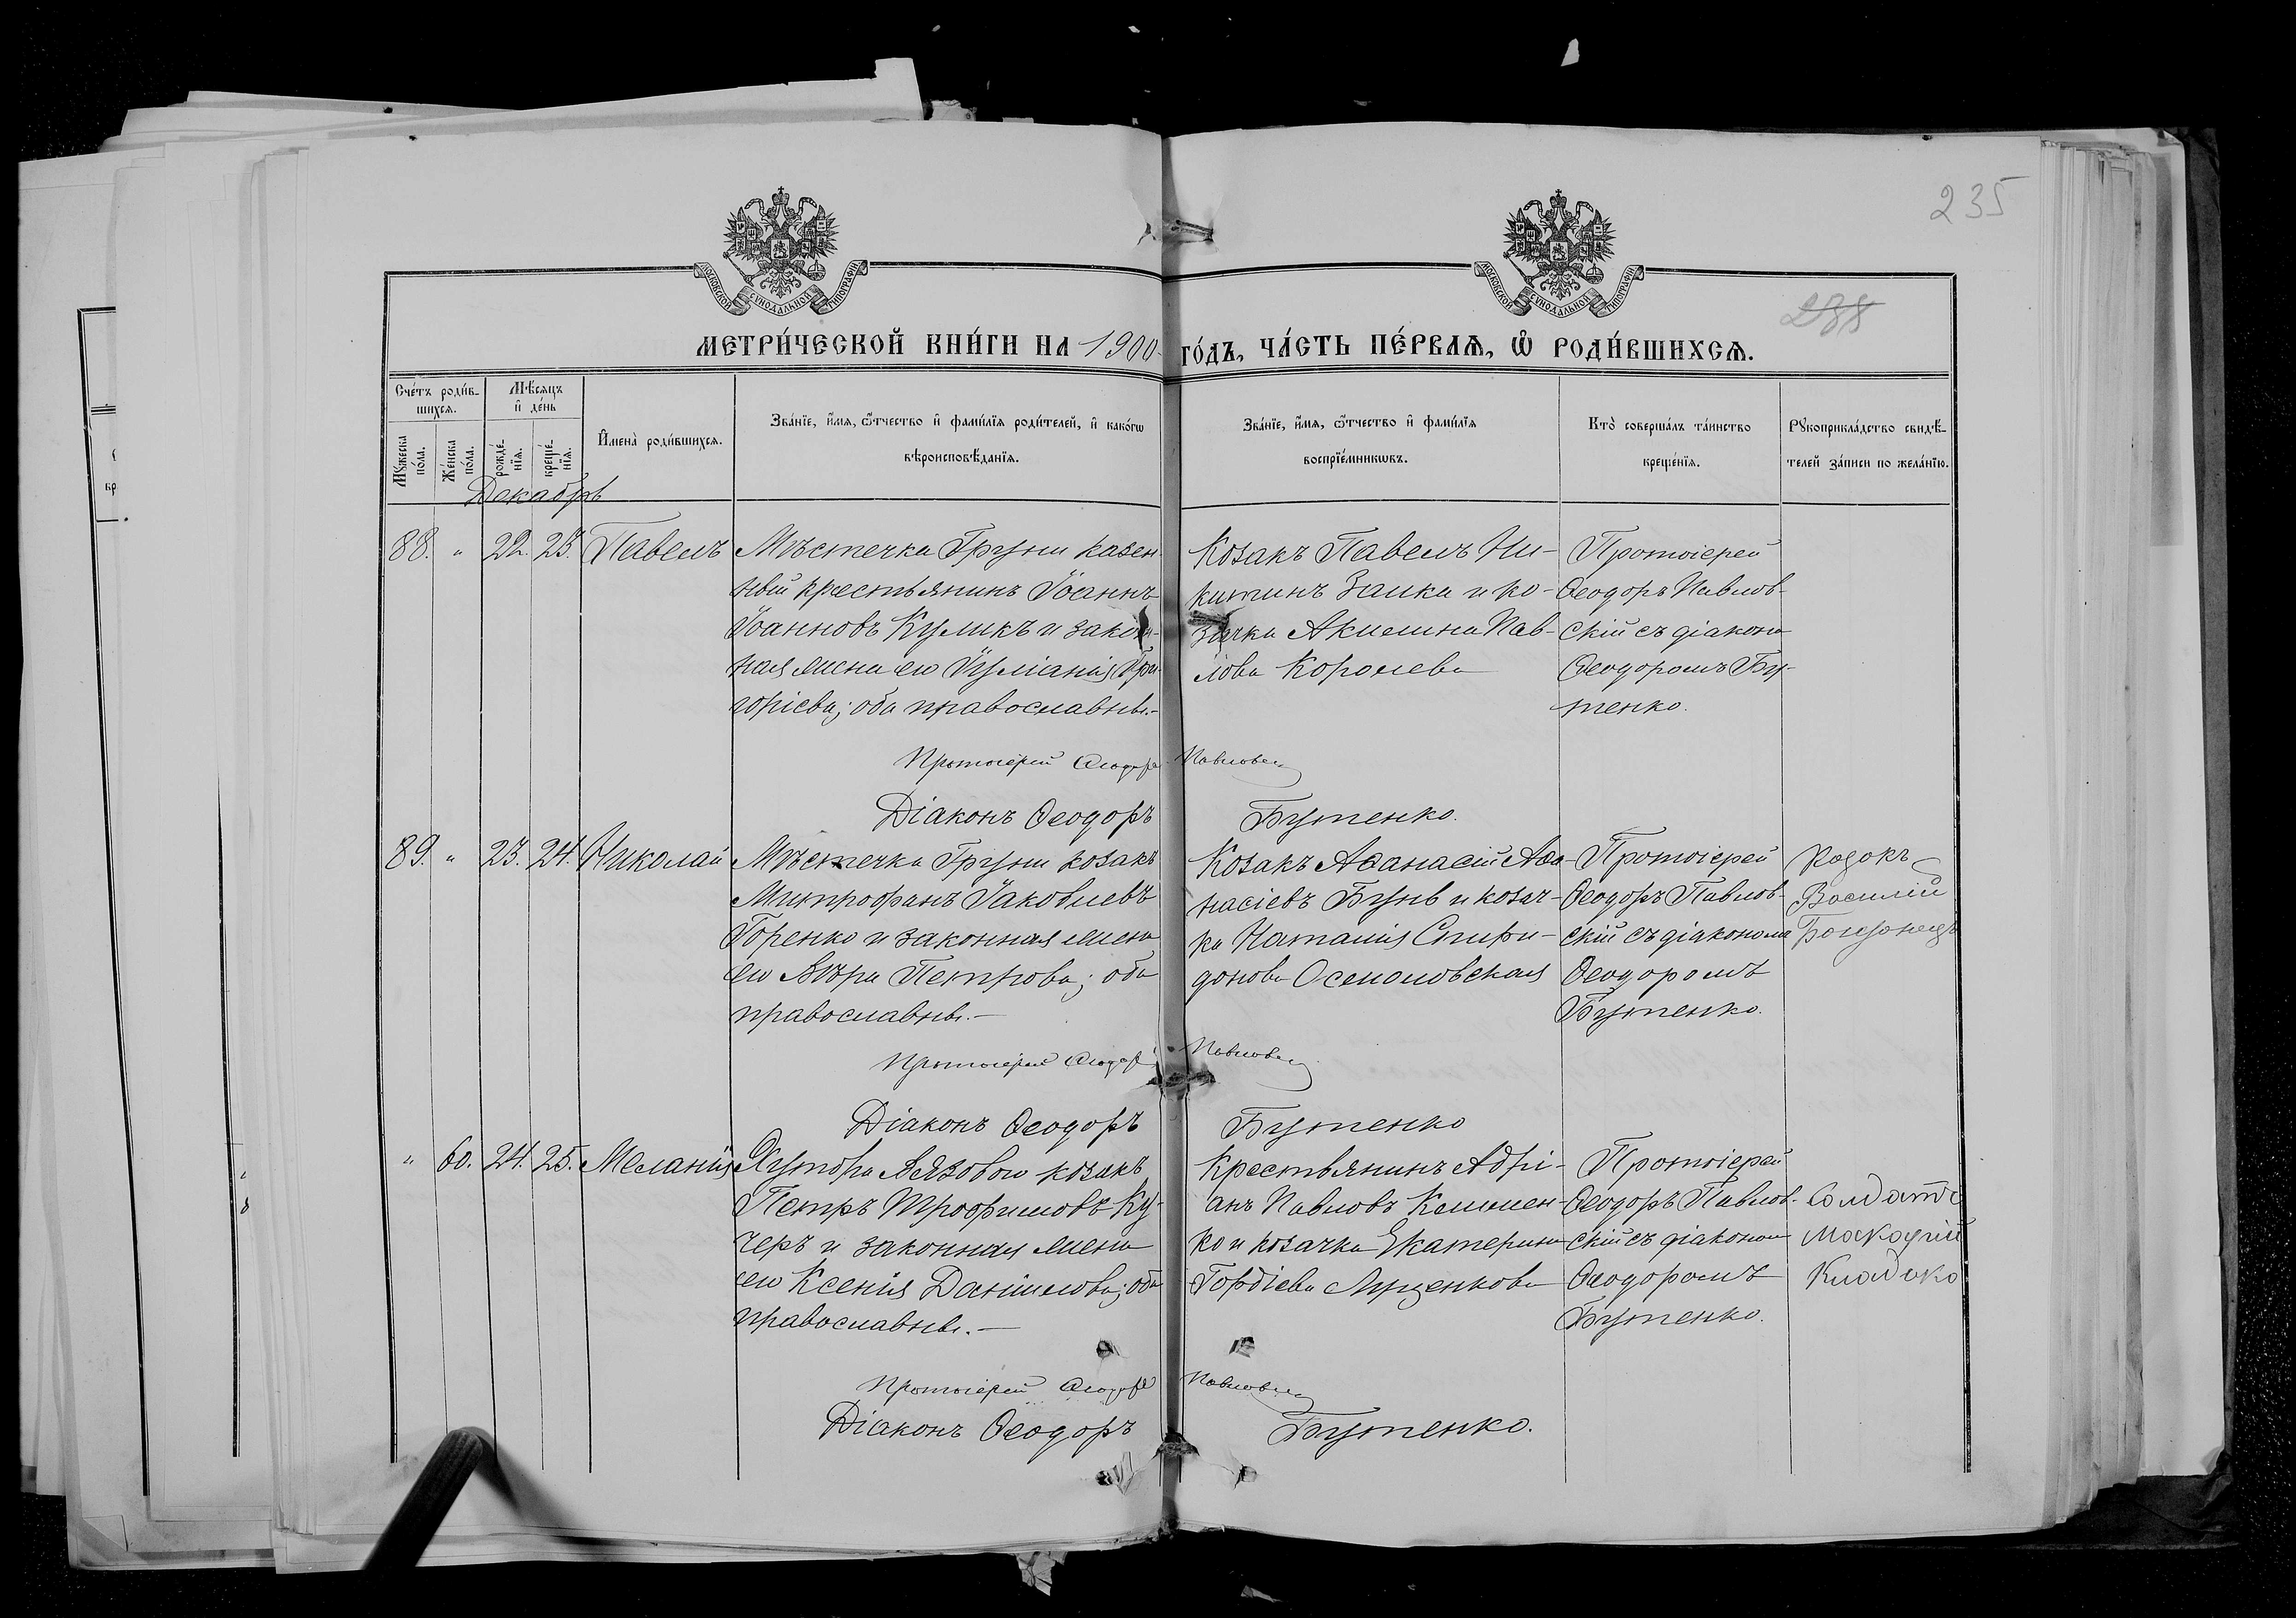 235
288
МОСКОВСКОЙ СѴНОДАЛЬНОЙ ТИПОГРАФІИ
МОСКОВСКОЙ СѴНОДАЛЬНОЙ ТИПОГРАФІИ
МЕТРИ́ЧЕСКОЙ КНИ́ГИ НА 1900 ГО́ДЪ, ЧА́СТЬ ПЕ́РВАѦ, Ѡ҆ РОДИ́ВШИХСѦ.
Сче́тъ роди́в-
шихсѧ.
Мꙋ́жеска по́ла.
Же́нска по́ла.
Мѣ́сѧцъ
и҆ де́нь
рожде́-нїѧ.
креще́-нїѧ.
И҆мена̀ роди́вшихсѧ.
Зва́нїе, и҆́мѧ, ѻ҆́тчество и҆ фами́лїѧ роди́телей, и҆ како́гѡ
вѣроисповѣ́данїѧ.
Зва́нїе, и҆́мѧ, ѻ҆́тчество и҆ фами́лїѧ
воспрїе́мникѡвъ.
Кто̀ соверша́лъ та́инство
креще́нїѧ.
Рꙋкоприкла́дство свидѣ́-
телей за́писи по жела́нїю.
Декабрь
88. " 22. 23. Павелъ
Мѣстечка Груни казен-
ный крестьянинъ Іоаннъ
Іоанновъ Куликъ и закон-
ная жена его Іуліанія Гри-
горіева; оба православны.-
Козакъ Павелъ Ни-
китинъ Заика и ко-
зачка Акилина Пав-
лова Королева
Протоіерей
Ѳеодоръ Павлов-
скій съ діакономъ
Ѳеодоромъ Бу-
тенко.
Протоіерей Ѳеодоръ Павловскій
Діаконъ Ѳеодоръ Бутенко.
89. " 23. 24. Николай
Мѣстечка Груни козакъ
Митрофанъ Іаковлевъ
Горенко и законная жена
его Вѣра Петрова; оба
православны.-
Козакъ Аѳанасій Аѳа-
насіевъ Бунь и козач-
ка Наталія Спири-
донова
Протоіерей
Ѳеодоръ Павлов-
скій съ діакономъ
Ѳеодоромъ
Бутенко.
Василій
Протоіерей Ѳеодоръ Павловскій
Діаконъ Ѳеодоръ Бутенко
" 60. 24. 25. Меланія
Хутора Вязового козакъ
Петръ Трофимовъ Ку-
черъ и законная жена
его Ксенія Даніилова; оба
православны.-
Крестьянинъ Адрі-
анъ Павловъ Климен-
ко и козачка Екатерина
Гордіева Луценкова
Протоіерей
Ѳеодоръ Павлов-
скій съ діакономъ
Ѳеодоромъ
Бутенко.
Солдатъ
Протоіерей Ѳеодоръ Павловскій
Діаконъ Ѳеодоръ Бутенко.